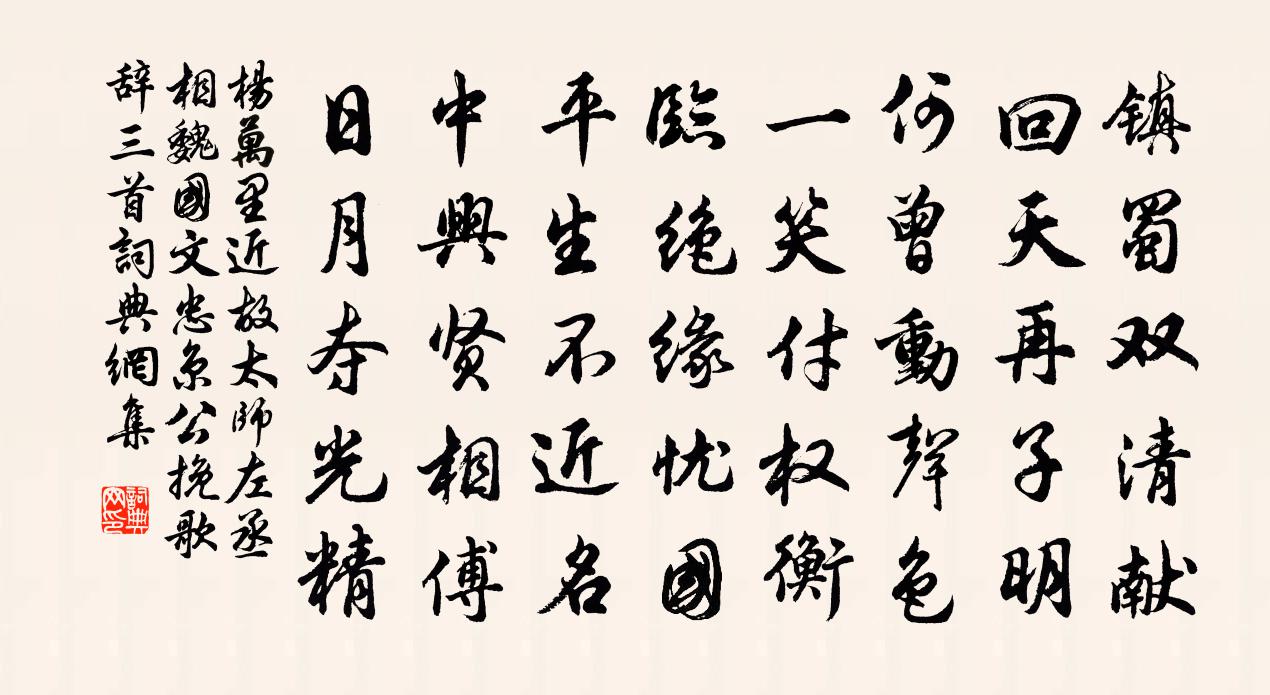 镇蜀双清献
回天再子明
何曾動聲色
一笑付权衡
臨绝缘忧國
平生不近名
中興贤相傅
日月夺光精
楊萬里近故太師左丞
相魏國文忠京公挽歌
辞三首詞典網集
詞典
网印